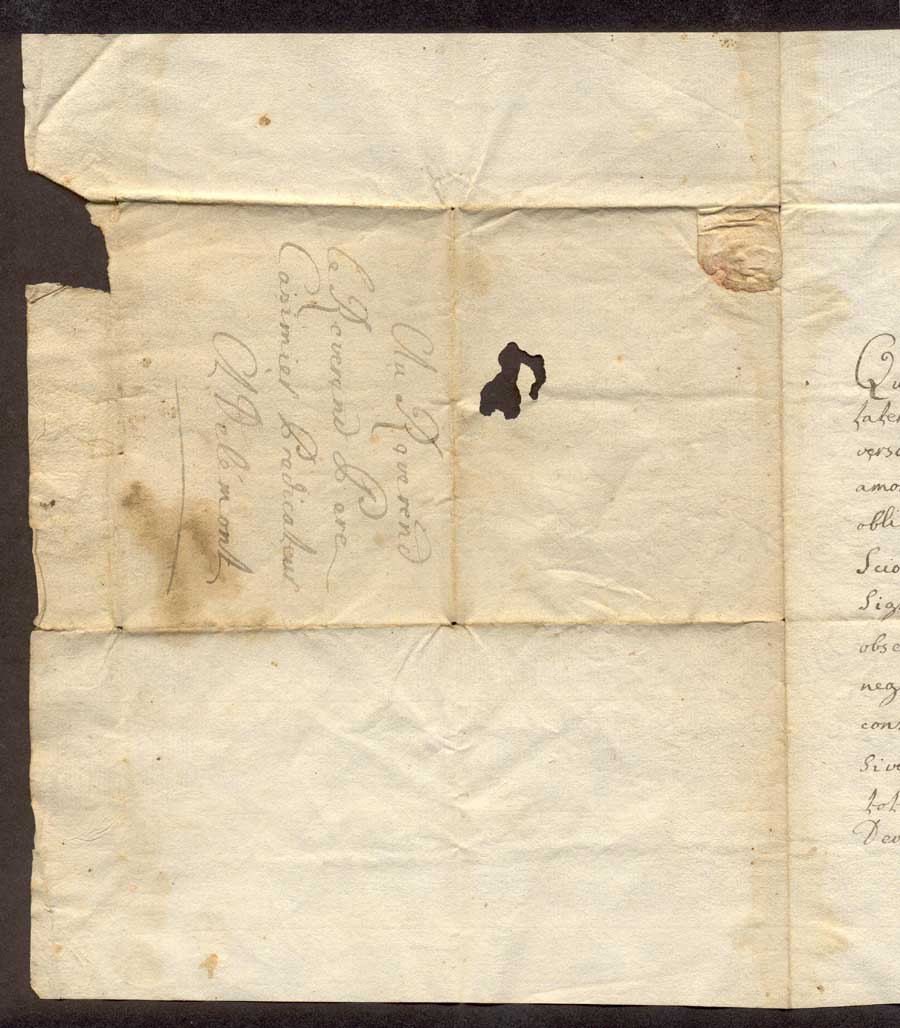 Au Reverend
le Reverend Pere
Casimier Predicateur
A Belémont
Qu
taten
verso
amo
obli
Scio
Sig
obse
neg
cons
Sive
tot
Dev